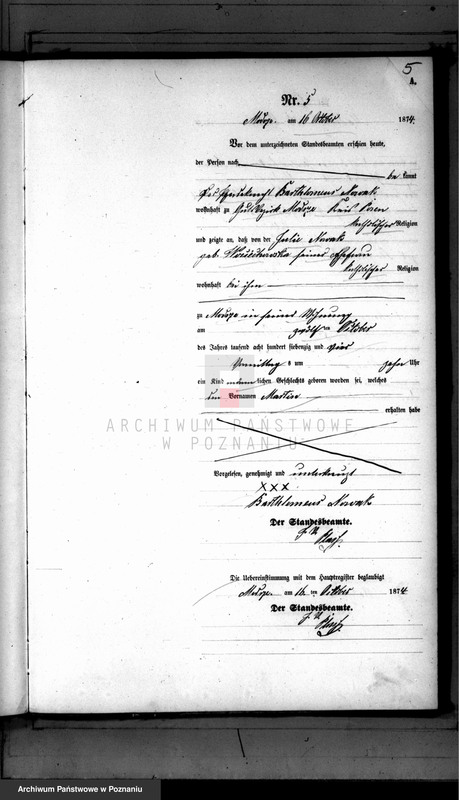 5
A.
Nr. 5
am 16 Oktober 1874
Vor dem unterzeichneten Standesbeamten erschien heute,
der Person nach
be kannt
Bartholomeus Nowak
wohnhaft zu Gutsbezirk Kreis Posen
katholischer Religion
und zeigte an, daß von der Julie Nowak
geb. seiner Ehefrau
katholischer Religion
wohnhaft bei ihm
zu in seiner Wohnung
am zwölften Oktober
des Jahrs tausend acht hundert siebenzig und vier
Vormittags um zehn Uhr
ein Kind männlichen Geschlechts geboren worden sei, welches
den Vornamen
erhalten habe
ARCHIWUM PAŃSTWOWE
W POZNANIU
Vorgelesen, genehmigt und unterkreuzt
XXX
Bartholomeus Nowak
Der Standesbeamte.
Die Uebereinstimmung mit dem Hauptregister beglaubigt
am 16 ten Oktober 1874
Der Standesbeamte.
Archiwum Państwowe w Poznaniu